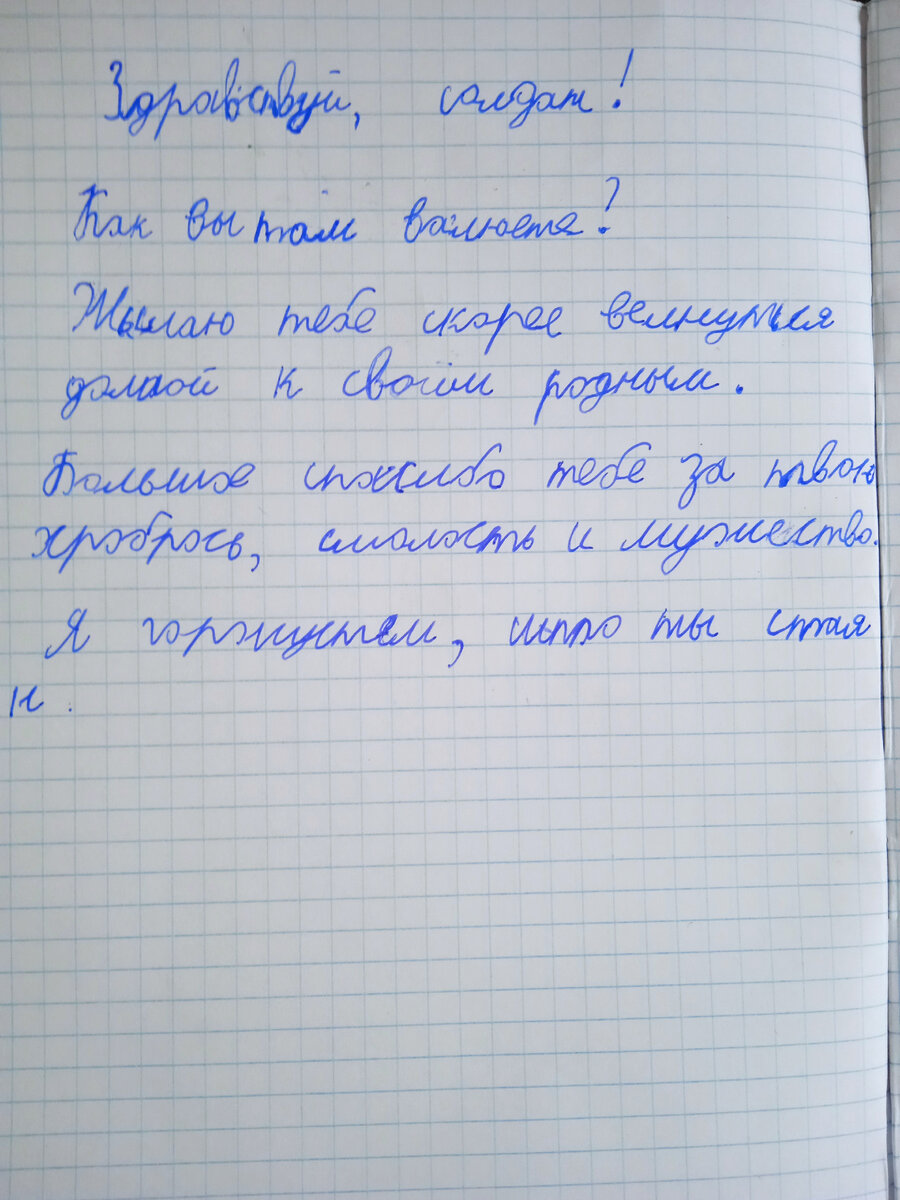 Здравствуй, солдат!
Как вы там ваюете?
Жылаю тебе скорее велнуться
домой к своим родным.
Большое спосибо тебе за твою
хробрось, смолость и мужество.
Я горжусь, што ты стоя
н.